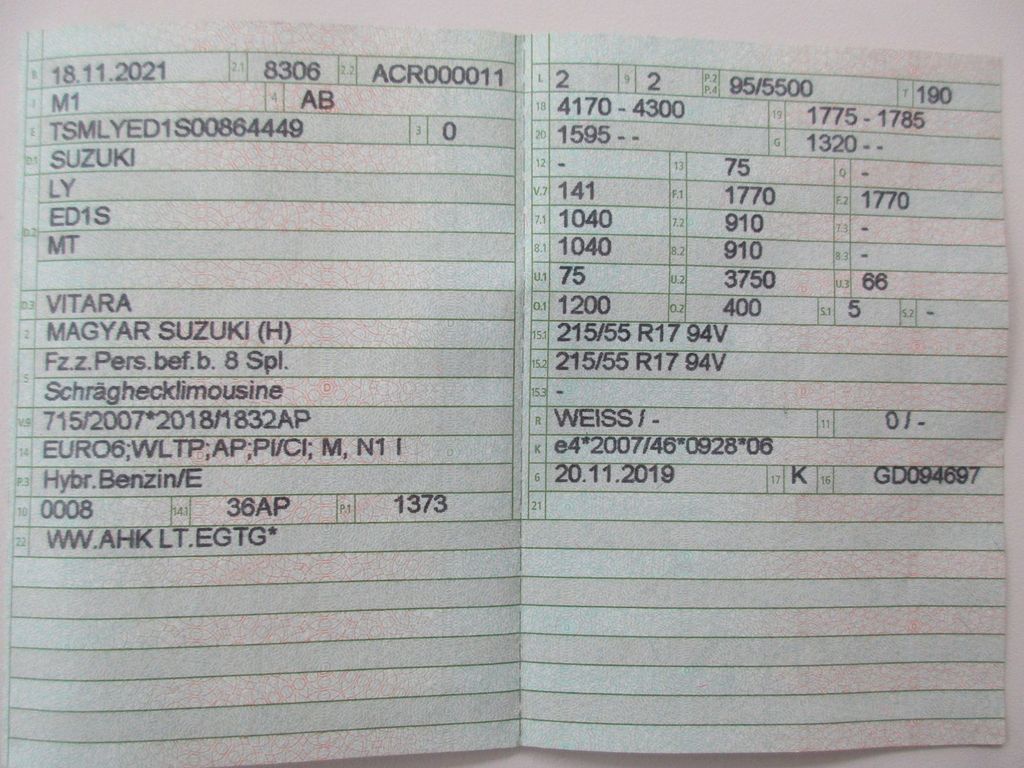 B 18.11.2021 2.1 8306 2.2 ACR000011
J M1 4 AB
E TSMLYED1S00864449 3 0
D.1 SUZUKI
LY
ED1S
D.2 MT
D.3 VITARA
2 MAGYAR SUZUKI (H)
Fz.z.Pers.bef.b. 8 Spl.
5 Schräghecklimousine
V.9 715/2007*2018/1832AP
14 EURO6;WLTP;AP;PI/CI; M, N1 I
P.3 Hybr.Benzin/E
10 0008 14.1 36AP P.1 1373
22 WW.AHK LT.EGTG*
L 2 9 2 P.2 P.4 95/5500 T 190
18 4170 - 4300 19 1775 - 1785
20 1595 - - G 1320 - -
12 - 13 75 Q -
V.7 141 F.1 1770 F.2 1770
7.1 1040 7.2 910 7.3 -
8.1 1040 8.2 910 8.3 -
U.1 75 U.2 3750 U.3 66
O.1 1200 O.2 400 S.1 5 S.2 -
15.1 215/55 R17 94V
15.2 215/55 R17 94V
15.3 -
R WEISS / - 11 0 / -
K e4*2007/46*0928*06
6 20.11.2019 17 K 16 GD094697
21